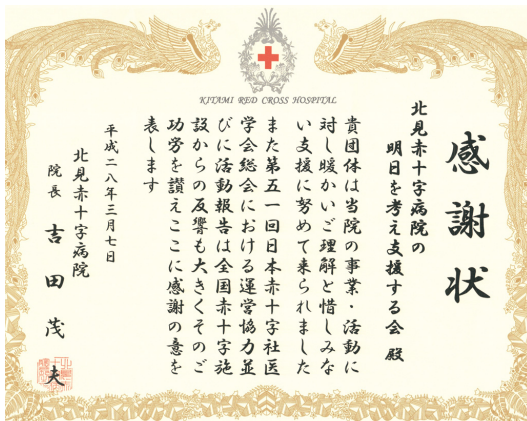 KITAMI RED CROSS HOSPITAL
感謝状
北見赤十字病院の
明日を考え支援する会 殿
貴団体は当院の事業・活動に
対し暖かいご理解と惜しみな
い支援に努めて来られました
また第五一回日本赤十字社医
学会総会における運営協力並
びに活動報告は全国赤十字施
設からの反響も大きくそのご
功労を讃えここに感謝の意を
表します
平成二八年三月七日
北見赤十字病院
院長 吉田茂夫